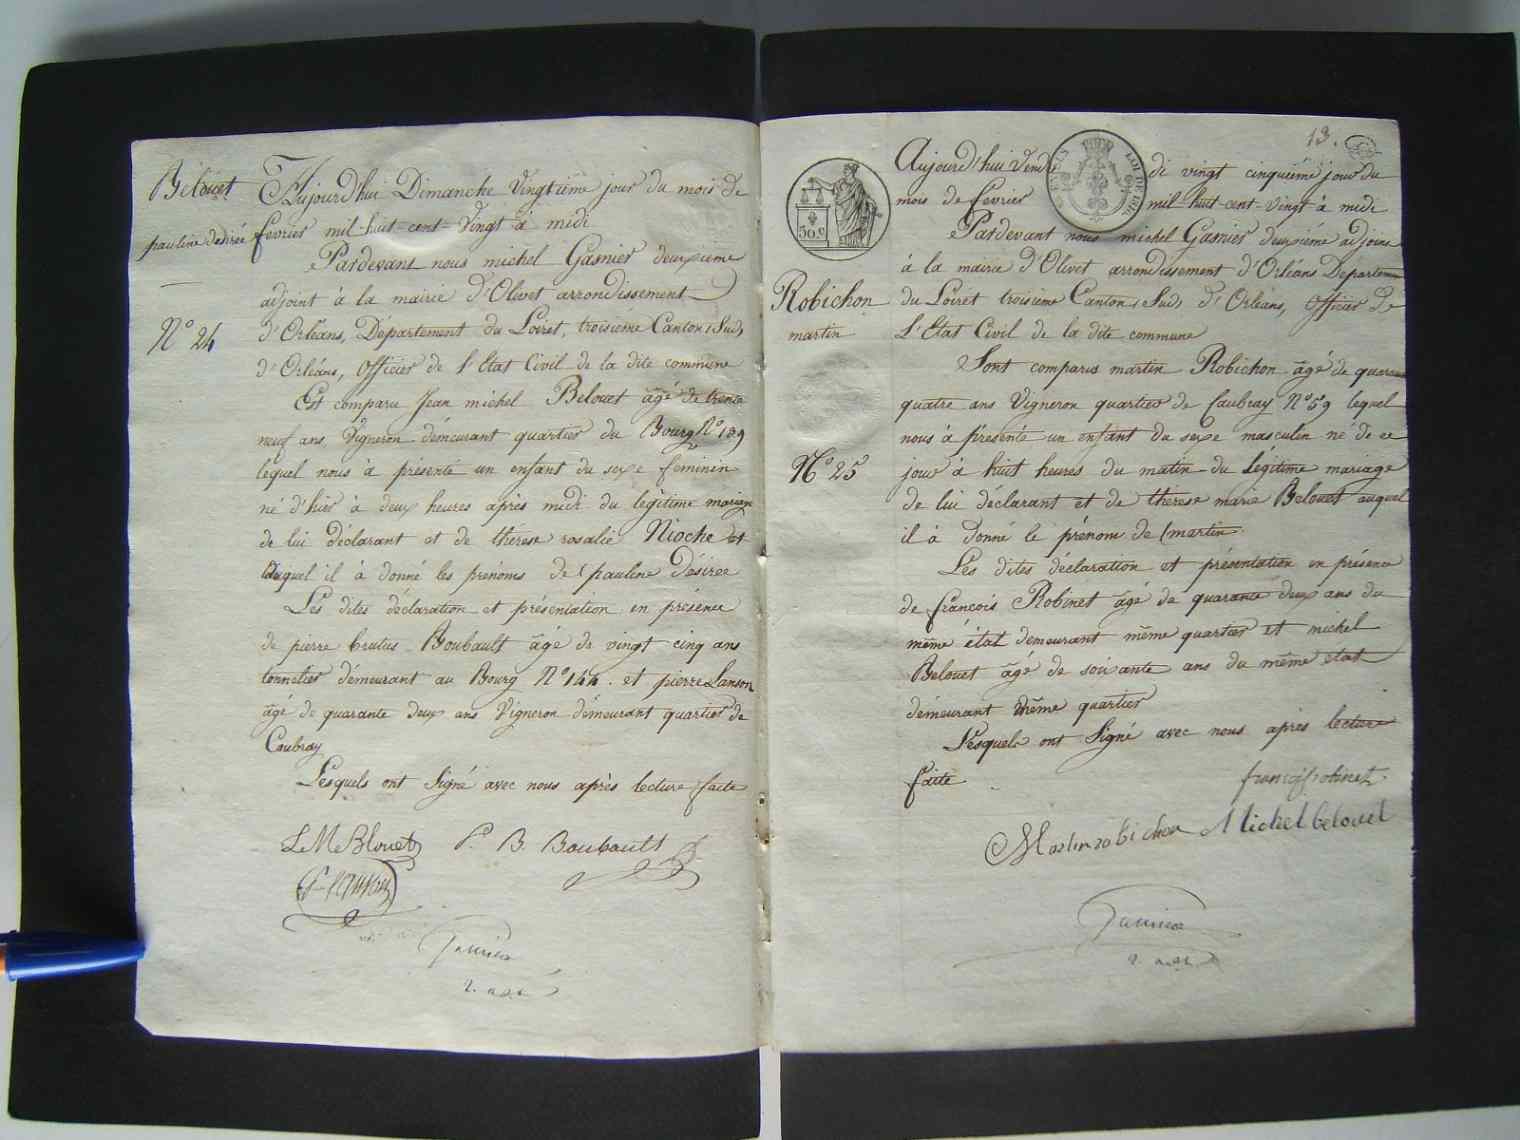 Belouet
pauline desirée
N° 24
Aujourd'hui Dimanche Vingtième jour du mois de
fevrier mil-huit-cent-Vingt à midi
Pardevant nous michel Gasnier deuxième
adjoint à la mairie d'Olivet arrondissement
d'Orléans, Département du Loiret, troisième Canton (Sud)
d'Orléans, Officier de l'Etat Civil de la dite commune
Est comparu Jean michel Belouet âgé de trente
neuf ans Vigneron démeurant quartier du Bourg N° 139
lequel nous à présenté un enfant du sexe féminin
né d'hier à deux heures après midi du légitime mariage
de lui déclarant et de thérese rosalie Nioche et
auquel il à donné les prénoms de pauline Désirée
Les dites déclaration et présentation en présence
de pierre brutus Boubault âgé de vingt cinq ans
tonnelier démeurant au Bourg N° 144. et pierre Lanson
âgé de quarante deux ans Vigneron démeurant quartier de
Caubray
Lesquels ont Signé avec nous après lecture faite
J M Blouet P. B. Boubault
P Lanson
Gasnier
2. adj.
13.
50 c
Robichon
martin
N° 25
Aujourd'hui Vendredi vingt cinquième jour du
mois de fevrier mil-huit-cent-vingt à midi
Pardevant nous michel Gasnier deuxième adjoint
à la mairie d'Olivet arrondissement d'Orléans Departem
du Loiret troisième Canton (Sud) d'Orléans, Officier de
l'Etat Civil de la dite commune
Sont comparus martin Robichon âgé de quarante
quatre ans Vigneron quartier de Caubray N° 59 lequel
nous à présenté un enfant du sexe masculin né de ce
jour à huit heures du matin du légitime mariage
de lui déclarant et de thérese marie Belouet auquel
il à donné le prénom de martin
Les dites déclaration et présentation en présence
de françois Robinet âgé de quarante deux ans du
même état demeurant même quartier et michel
Belouet âgé de soixante ans du même état
démeurant même quartier
Lesquels ont Signé avec nous après lecture
faite
françois robinet
Martin robichon Michel belouet
Gasnier
2. adj.